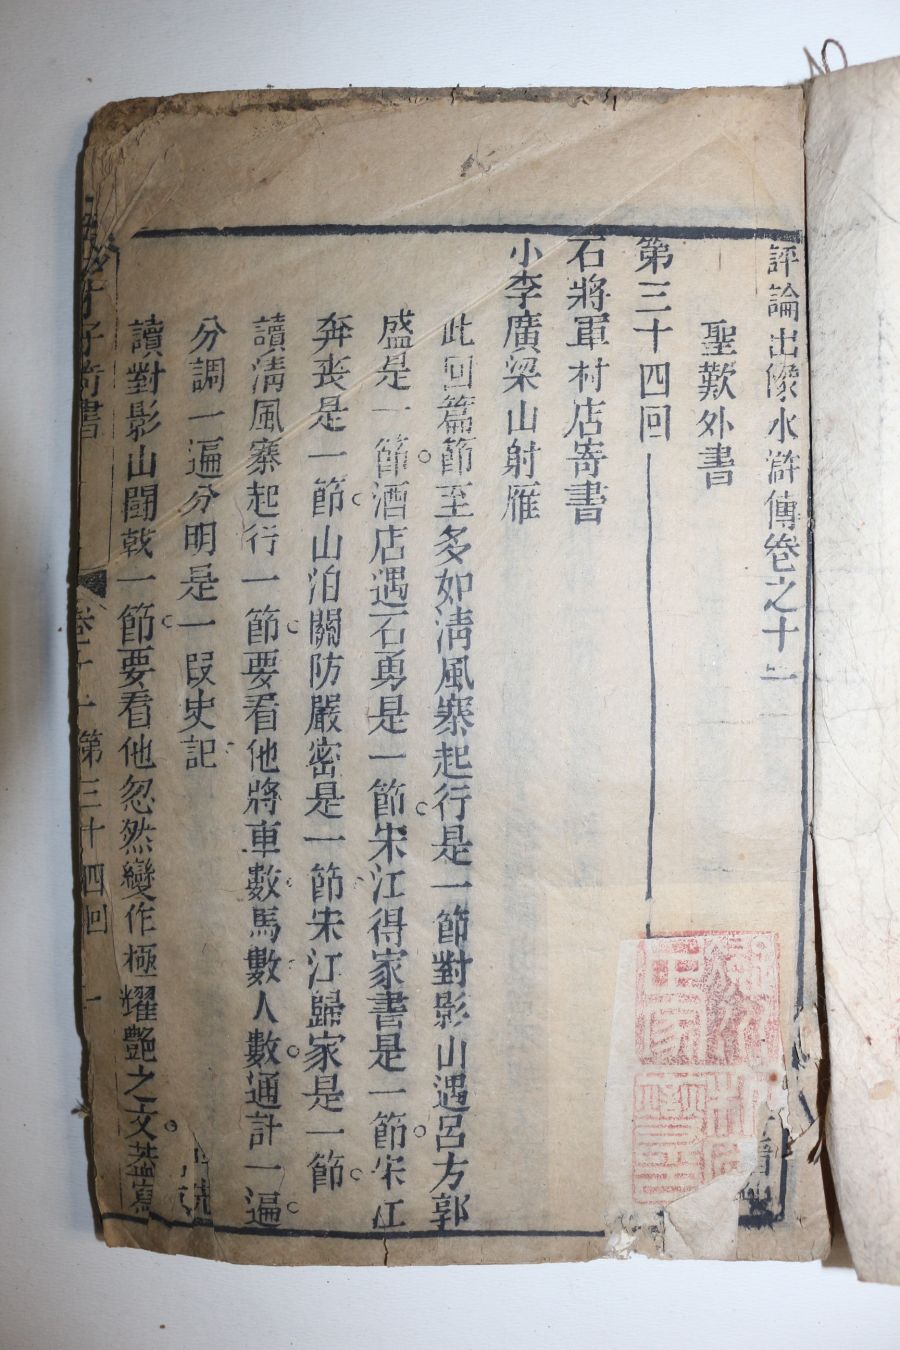 評論出像水滸傳卷之十二
聖歎外書
第三十四回
石將軍村店寄書
小李廣梁山射雁
此回篇節至多如清風寨起行是一節對影山遇呂方郭
盛是一節酒店遇石勇是一節宋江得家書是一節宋江
奔喪是一節山泊關防嚴密是一節宋江歸家是一節
讀清風寨起行一節要看他將車數馬數人數通計一遍
分調一遍分明是一段史記
讀對影山鬬戟一節要看他忽然變作極耀艷之文蓋寫
才子奇書
第三十四回 一